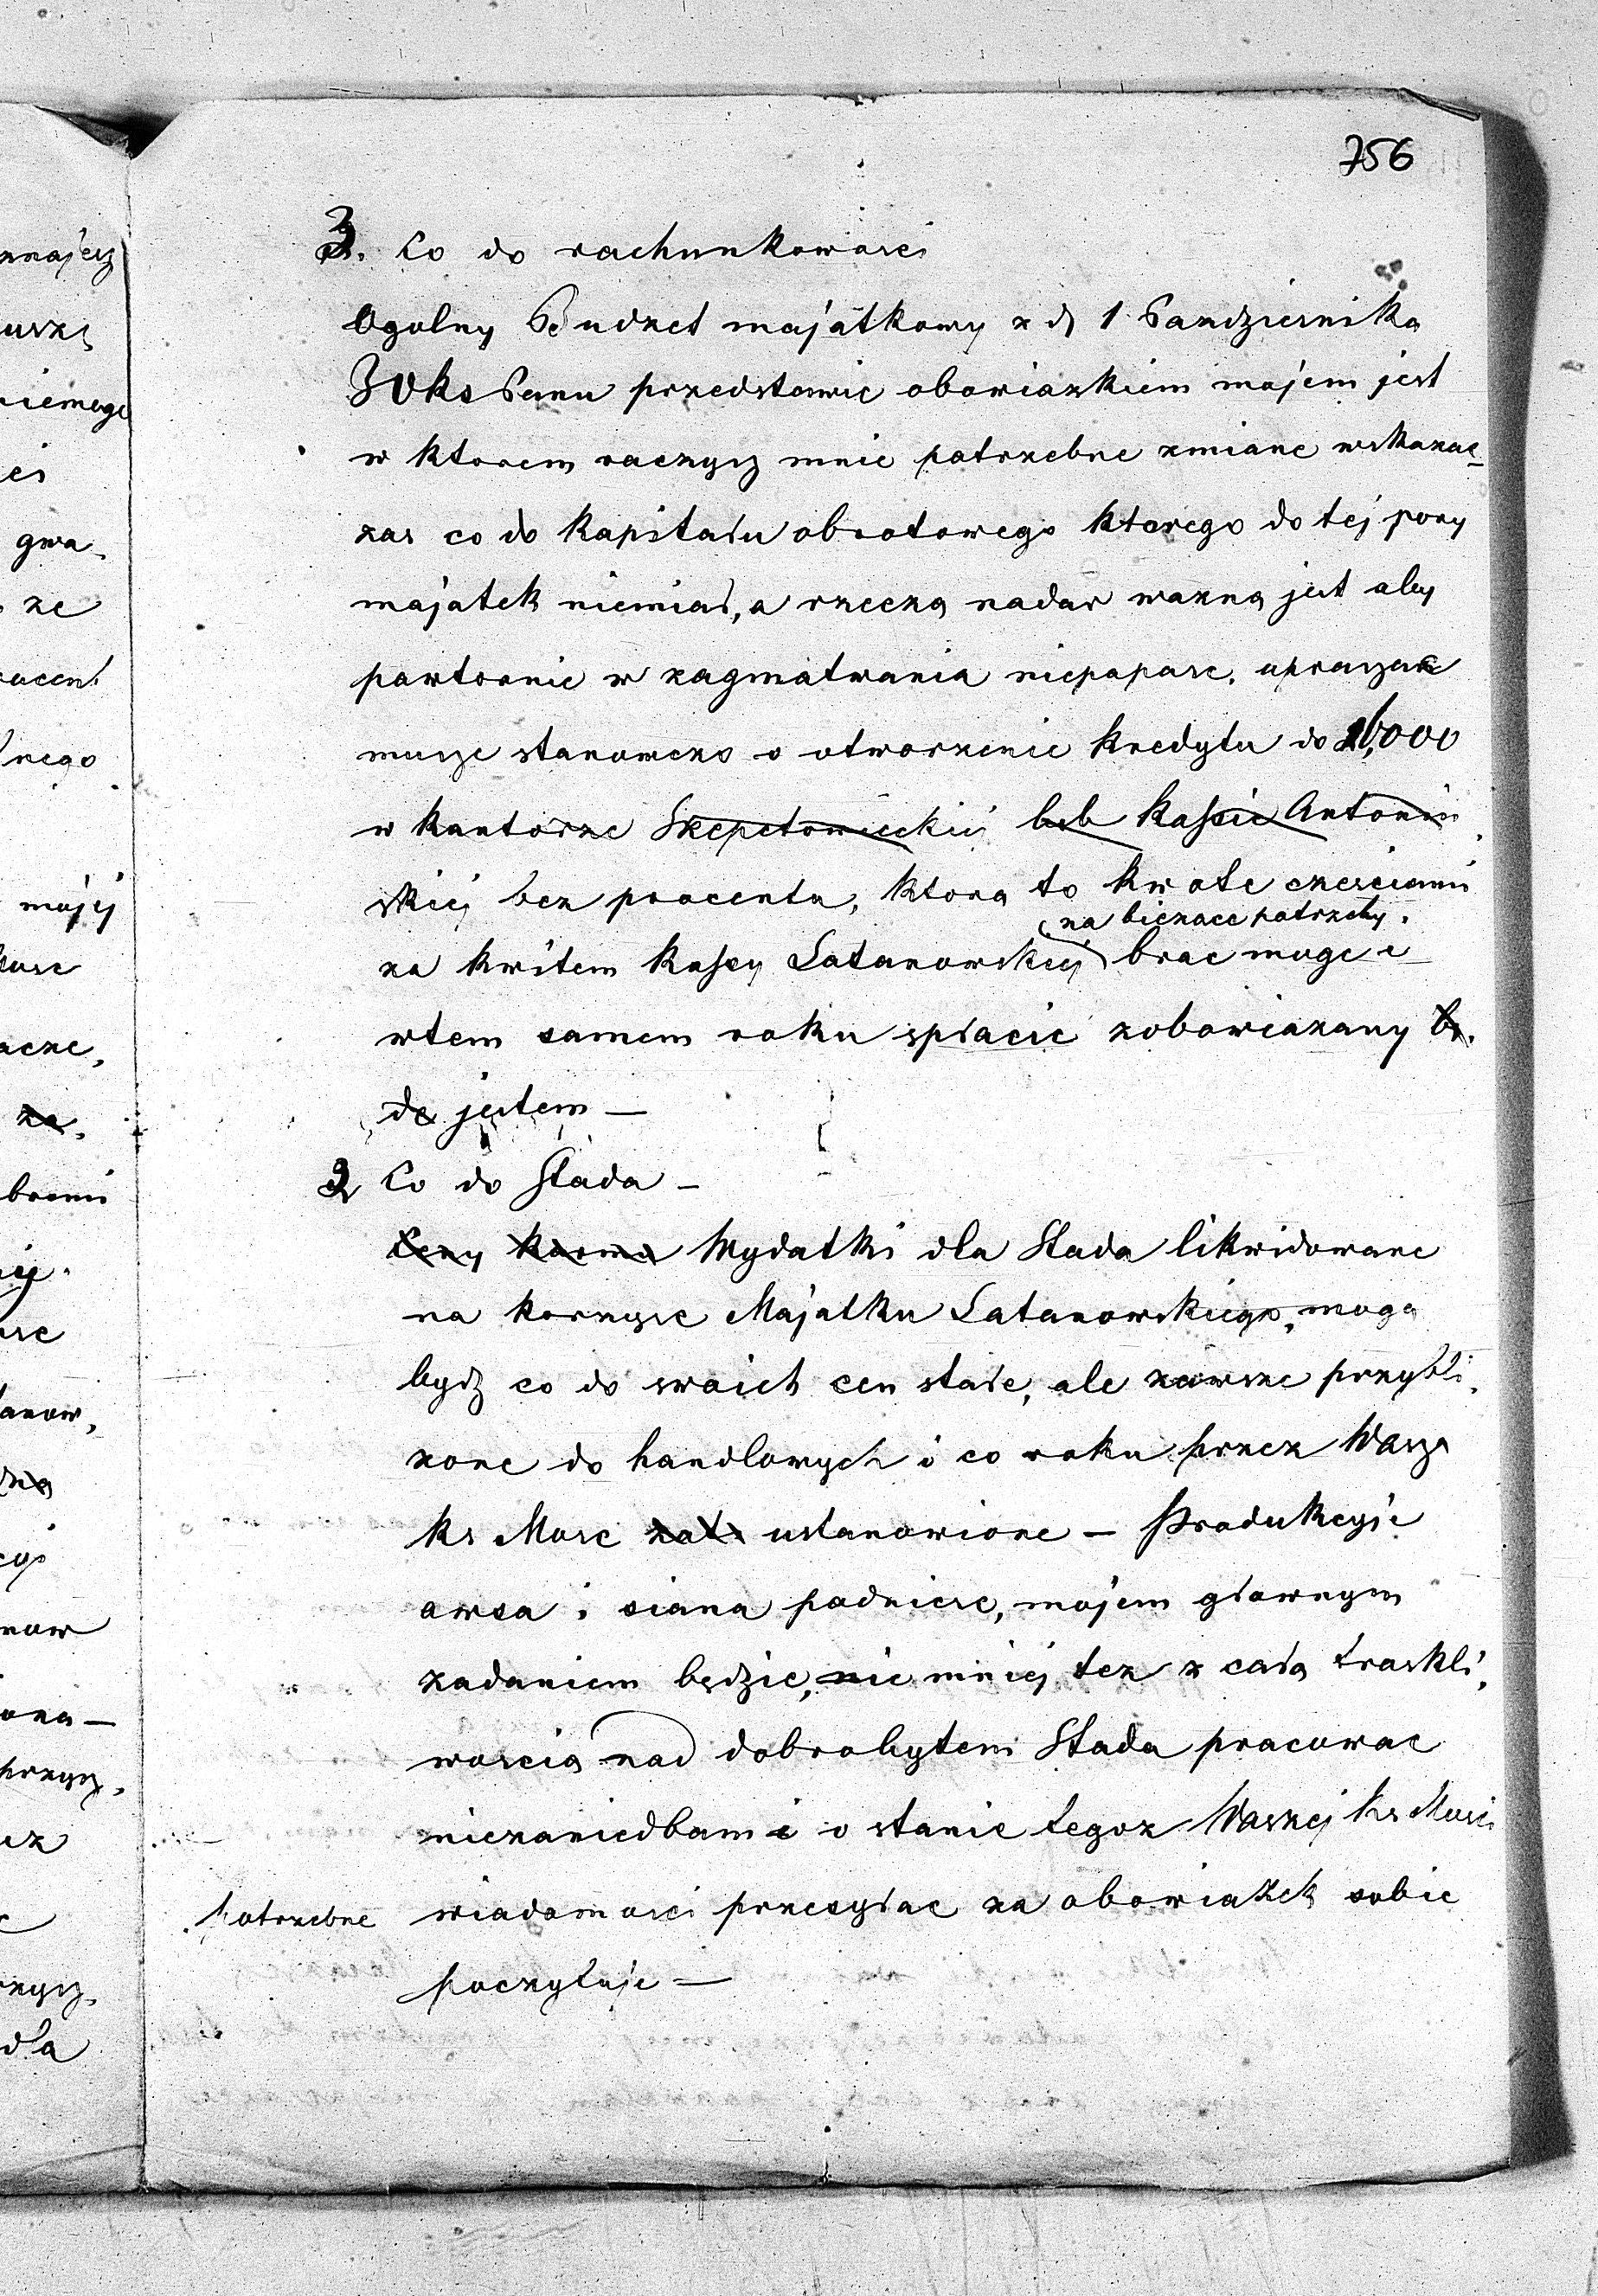 756
3. Co do rachunkowosci
Ogolny Budzet majątkowy z d 1 Pazdziernika
JOks Panu przedstawic obowiazkiem mojem jest
w ktorem raczysz mnie potrzebne zmiane wskazac
zas co do Kapitału obrotowego ktorego do tej pory
majatek niemiał, a rzeczą nadar wazną jest aby
powtornie w zagmatwania niepopasc, upraszac
musze stanowczo o otworzenie Kredytu do 16,000
w kantorze Szepetowieckiej lub Kassie Antonin
skiej bez procentu, ktora to kwote czesciami
na biezace potrzeby.
za kwitem Kassy Satanowskiej brac moge i
wtem samem roku spłacic zobowiazany be.
de jestem —
2 Co do Stada —
Ceny Karmu Wydatki dla Stada likwidowane
na korzysc Majatku Satanowskiego, moga
bydz co do swoich cen stałe, ale zawsze przybli.
zone do handlowych i co roku przez Wasza
Ks Mosc zat. ustanowione — Produkcyje
owsa i siana podniesc, mojem głownym
zadaniem będzie, nie mniej tez z cała troskli.
woscią nad dobrobytem Stada pracowac
niezaniedbam i o stanie tegoz Waszej Ks Mosci
potrzebne wiadomosci przesyłac za obowiazek sobie
poczytuje —
majesz
niemogo
gwa.
ze
nego
mojej
za.
dla